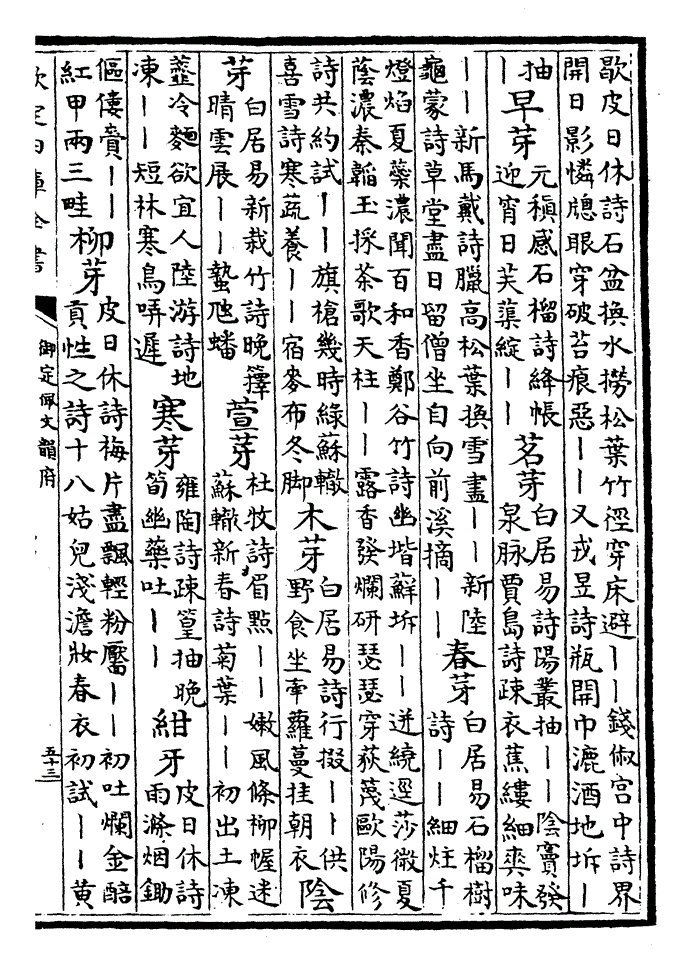 歇皮日休詩石盆換水撈松葉竹徑穿床避丨丨錢俶宮中詩界
開日影憐牕眼穿破苔痕惡丨丨又戎昱詩瓶開巾漉酒地坼丨
抽
丨
早芽
元稹感石榴詩絳帳
迎宵日芙蕖綻丨丨
茗芽
白居易詩陽叢抽丨丨陰竇發
泉脉賈島詩疎衣蕉縷細爽味
丨丨新馬戴詩臘高松葉換雪盡丨丨新陸
龜蒙詩草堂盡日留僧坐自向前溪摘丨丨
春芽
白居易石榴樹
詩丨丨細炷千
燈焰夏藥濃聞百和香鄭谷竹詩幽堦蘚坼丨丨迸繞逕莎微夏
蔭濃秦韜玉採茶歌天柱丨丨露香發爛研瑟瑟穿荻篾歐陽修
詩共約試丨丨旗槍幾時綠蘇轍
喜雪詩寒蔬養丨丨宿麥布冬脚
木芽
白居易詩行掇丨丨供
野食坐牽蘿蔓挂朝衣
陰
芽
白居易新栽竹詩晚籜
晴雲展丨丨蟄虺蟠
萱芽
杜牧詩眉點丨丨嫩風條柳幄迷
蘇轍新春詩菊葉丨丨初出土凍
虀冷麵欲宜人陸游詩地
凍丨丨短林寒鳥哢遲
寒芽
雍陶詩疎篁抽晚
筍幽藥吐丨丨
紺牙
皮日休詩
雨滌烟鋤
傴僂賷丨丨
紅甲兩三畦
柳芽
皮日休詩梅片盡飄輕粉靨丨丨初吐爛金醅
貢性之詩十八姑兒淺澹妝春衣初試丨丨黃
欽定四庫全書
御定佩文韻府
五十三